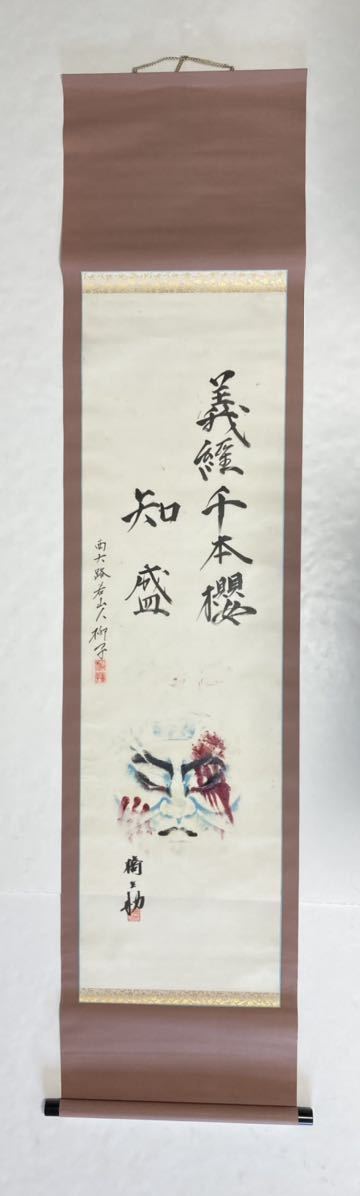 義經千本櫻
知盛
西大路若山人柳子
橋之助